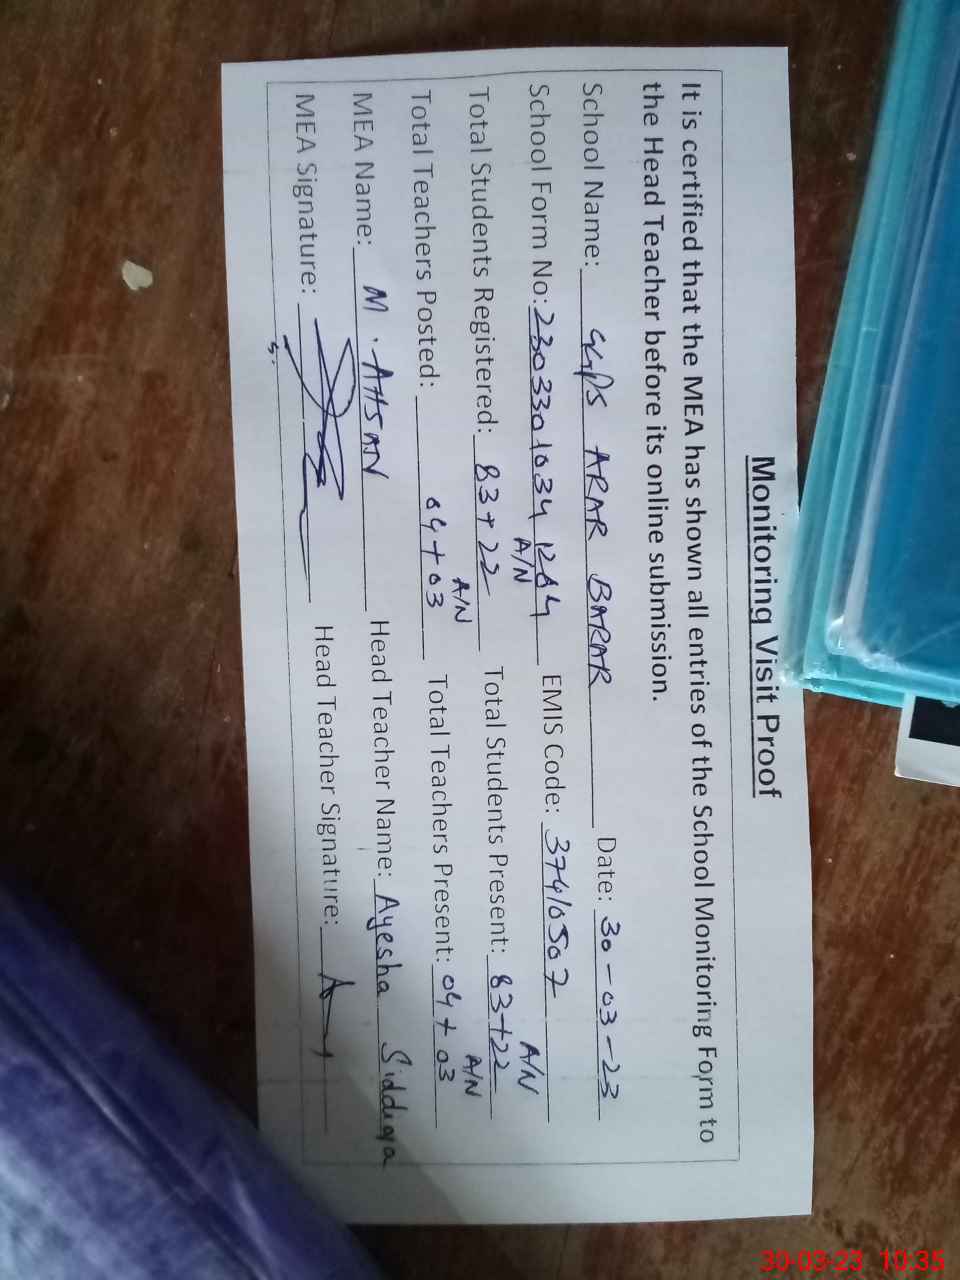 Monitoring Visit Proof
It is certified that the MEA has shown all entries of the School Monitoring Form to
the Head Teacher before its online submission.
School Name: GGPS ARAR BARAR Date: 30-03-23
School Form No: 2303301034 1264 EMIS Code: 37410507
A/N A/N
Total Students Registered: 83+22 Total Students Present: 83+22
A/N A/N
Total Teachers Posted: 04+03 Total Teachers Present: 04+03
MEA Name: M. AHSAN Head Teacher Name: Ayesha Siddiqa
MEA Signature: Head Teacher Signature:
30-03-23 10:35